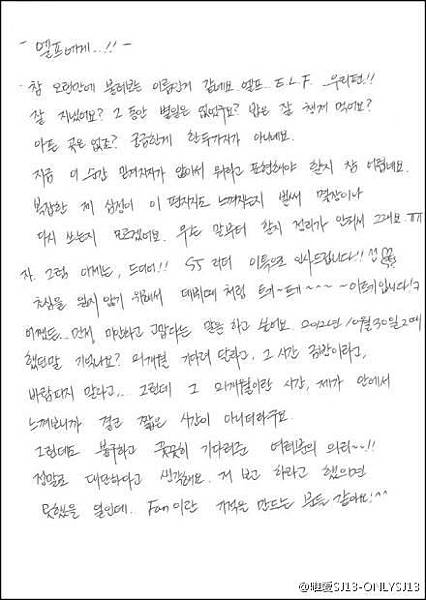 - 엘프에게..!! -
참 오랜만에 불러보는 이름인거 같네요. 엘프. E.L.F. 우리편!!
잘 지냈어요? 그 동안 별일은 없었구요? 밥은 잘 챙겨 먹어요?
아픈 곳은 없죠? 궁금한게 한두가지가 아니네요.
지금 이 순간 만저자자가 앞이서 뭐라고 표현해야 할지 참 어렵네요.
복잡한 제 심정이 이 편지지도 느껴지는지 벌써 몇장이나
다시 쓰는지 모르겠어요. 무슨 말부터 할지 정리가 안되서 그래요.ㅠㅠ
자. 그럼 이제는, 드디어!! SJ 리더 이특으로 인사드립니다!!
초심을 잃지 않기 위해서 데뷔때 처럼 트기~트기~~~~이특기입니다!
어쨌든.. 먼저 미안하고 고맙다는 말을 하고 싶어요. 2012년 10월 30일 그때
했던말 기억나요? 21개월 기다려 달라고, 그 시간 금방이라고,
바람피지 말라고.. 그런데 그 21개월이란 시간, 제가 안에서
느껴보니까 결코 짧은 시간이 아니더라구요.
그런데도 불구하고 꿋꿋히 기다려준 여러분의 의리~!!
정말로 대단하다고 생각해요. 저 보고 하라고 했으면
못했을 일인데. Fan이란 기적을 만드는 분들 같아요!^^
@唯愛SJ13-ONLYSJ13